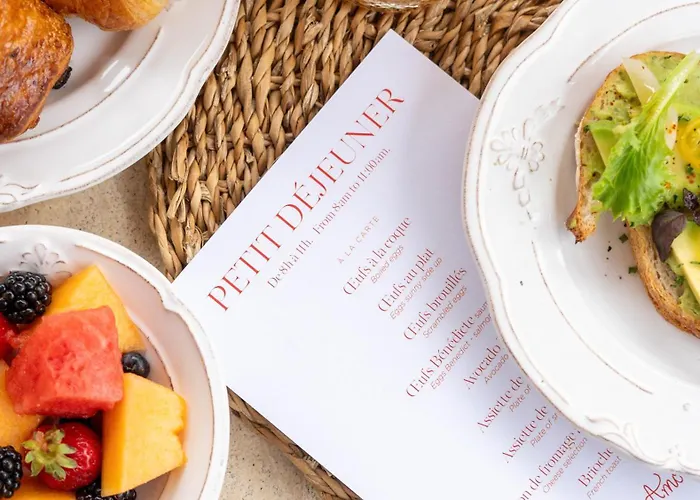 PETIT DÉJEUNER
De 8h à 11h. From 8am to 11:00am.
À LA CARTE
Œufs à la coque
Boiled eggs
Œufs au plat
Eggs sunny side up
Œufs brouillés
Scrambled eggs
Œufs Bénédicte
Eggs Benedict - salmon
Avocado
Avocado
Assiette de
Plate of
Assiette de
Plate of
de fromage
Cheese selection
Brioche
French toast